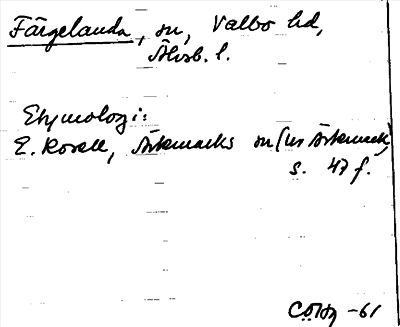 Färgelanda, sn, Valbo hd,
Älvsb. l.
Etymologi:
E. Rosell, Ärtemarks sn (us Ärtemark)
s. 47 f.
-61